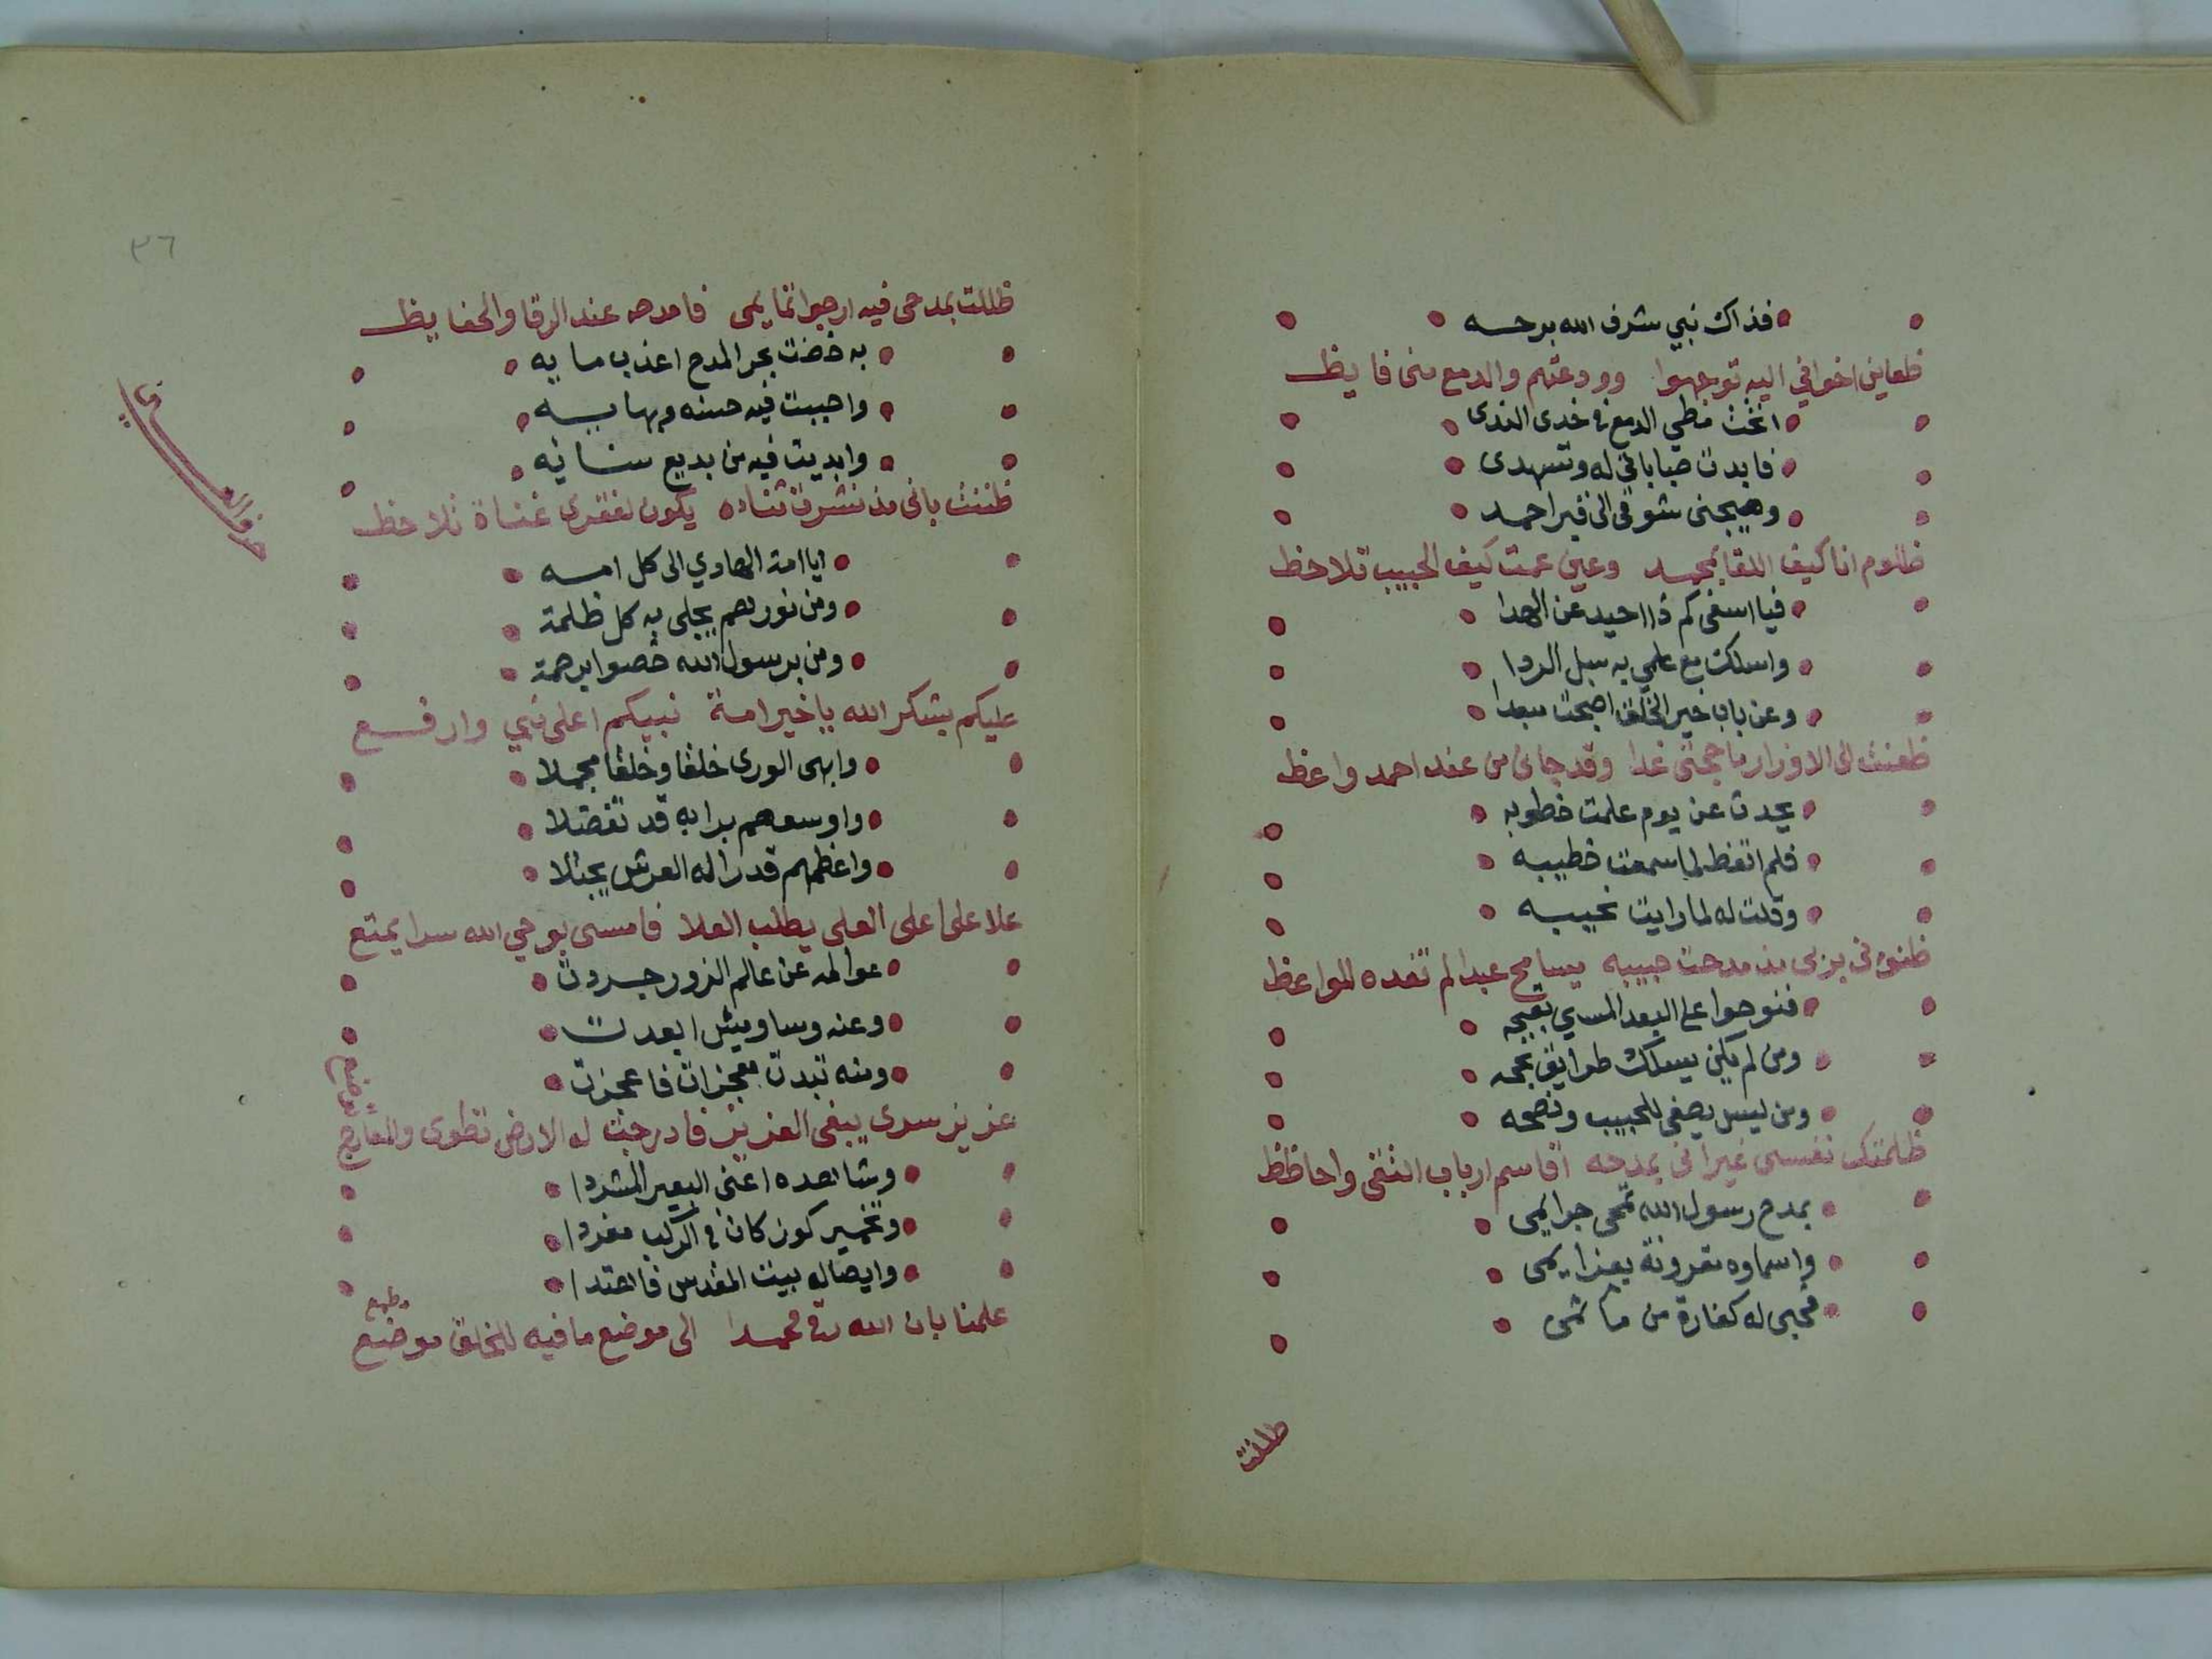 فذاك نبي شرف الله برحسه
ظعاين اخواني اليه توجهوا وودعتهم والدمع منى فايظ
انخت مطي الدمع في خدى الندى
فابدت صباباتي له وتسهدى
وهيجنى شوقى الى قبر احمد
ظلوم انا كيف اللقا بمحمد وعين عمت كيف الحبيب تلاحظ
فيا اسفى كم ذا احيد عن الهدا
واسلكت مع علمي به سبل الردا
وعن باب خير الخلق اصبحت مبعدا
ظعنت الى الاوزار ما حجتى غدا وقد جانى من عند احمد واعظ
يحدث عن يوم علمت خطوبه
فلم اتعظ لما سمعت خطيبه
وقلت له لما رايت نحيبه
ظنونى بربى مذ مدحت حبيبه يسامح عبدا لم تفده المواعظ
فنوحوا على البعد المسي بقبحه
ومن لم يكن يسلك طرايق نجحه
ومن ليس يصغى للحبيب ونصحه
ظلمتك نفسى غير انى بمدحه اقاسم ارباب التقى واحاظظ
بمدح رسول الله تمحى جرايمى
واسماوه مقرونة بعزايمى
فحبى له كفارة من مآثمى
ظللت
ظللت بمدحى فيه ارجوا نمايمى فامدحه عند الرقا والحفايظ
به خضت بحر المدح اعذب مايه
واحببت فيه حسنه وبهايه
وابديت فيه من بديع سنايه
ظننت بانى مذ نشرت ثناده يكون لفقرى غناة تلاحظ
حرف العين
ايا امة الهادي الى كل امه
ومن نورهم يجلى به كل ظلمة
ومن برسول الله خصوا برحمة
عليكم بشكر الله يا خير امة نبيكم اعلى نبي وارفع
وابهى الورى خلقا وخلقا مجملا
واوسعهم برا به قد تفضلا
واعظمهم قدرا له العرش يجتلا
علا على اعلى العلى يطلب العلا فامسى بوحي الله سرا يمتع
عوالمه عن عالم الزور جردت
وعنه وساويس ابعدت
ومنه تبدت معجزات فاعجزت
عزيز سرى يبغى العزيز فادرجت له الارض تطوى والمعارج
توضع
وشاهده اعنى البعير المشردا
وتخمير كوز كان في الركب مفردا
وايصاله بيت المقدس فاهتدا
علمنا بان الله رقى محمدا الى موضع ما فيه للخلق موضع
مطمع
٢٦